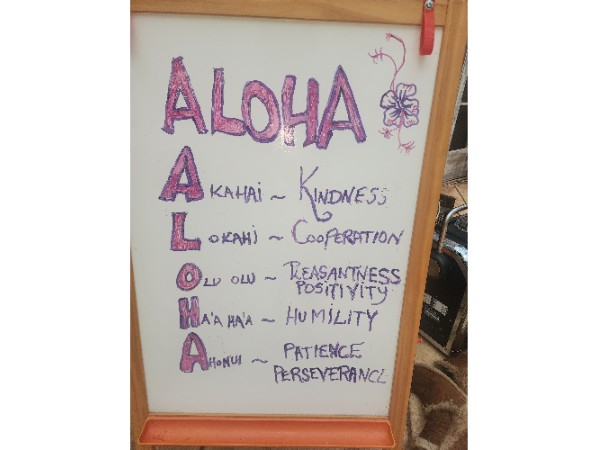 ALOHA
AKAHAI ~ KINDNESS
LOKAHI ~ COOPERATION
OLU OLU ~ PLEASANTNESS
POSITIVITY
HA'A HA'A ~ HUMILITY
AHONUI ~ PATIENCE
PERSEVERANCE